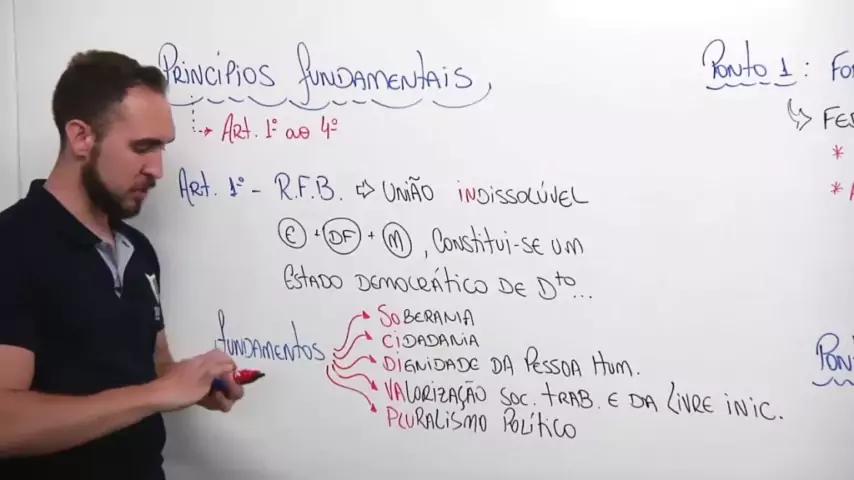 PRINCÍPIOS FUNDAMENTAIS
ART. 1º AO 4º
ART. 1º - R.F.B. ⇨ UNIÃO INDISSOLÚVEL
E + DF + M, CONSTITUI-SE UM
ESTADO DEMOCRÁTICO DE Dto...
FUNDAMENTOS
SOBERANIA
CIDADANIA
DIGNIDADE DA PESSOA HUM.
VALORIZAÇÃO SOC. TRAB. E DA LIVRE INIC.
PLURALISMO POLÍTICO
PONTO 1: FO
FED
*
*
PONT